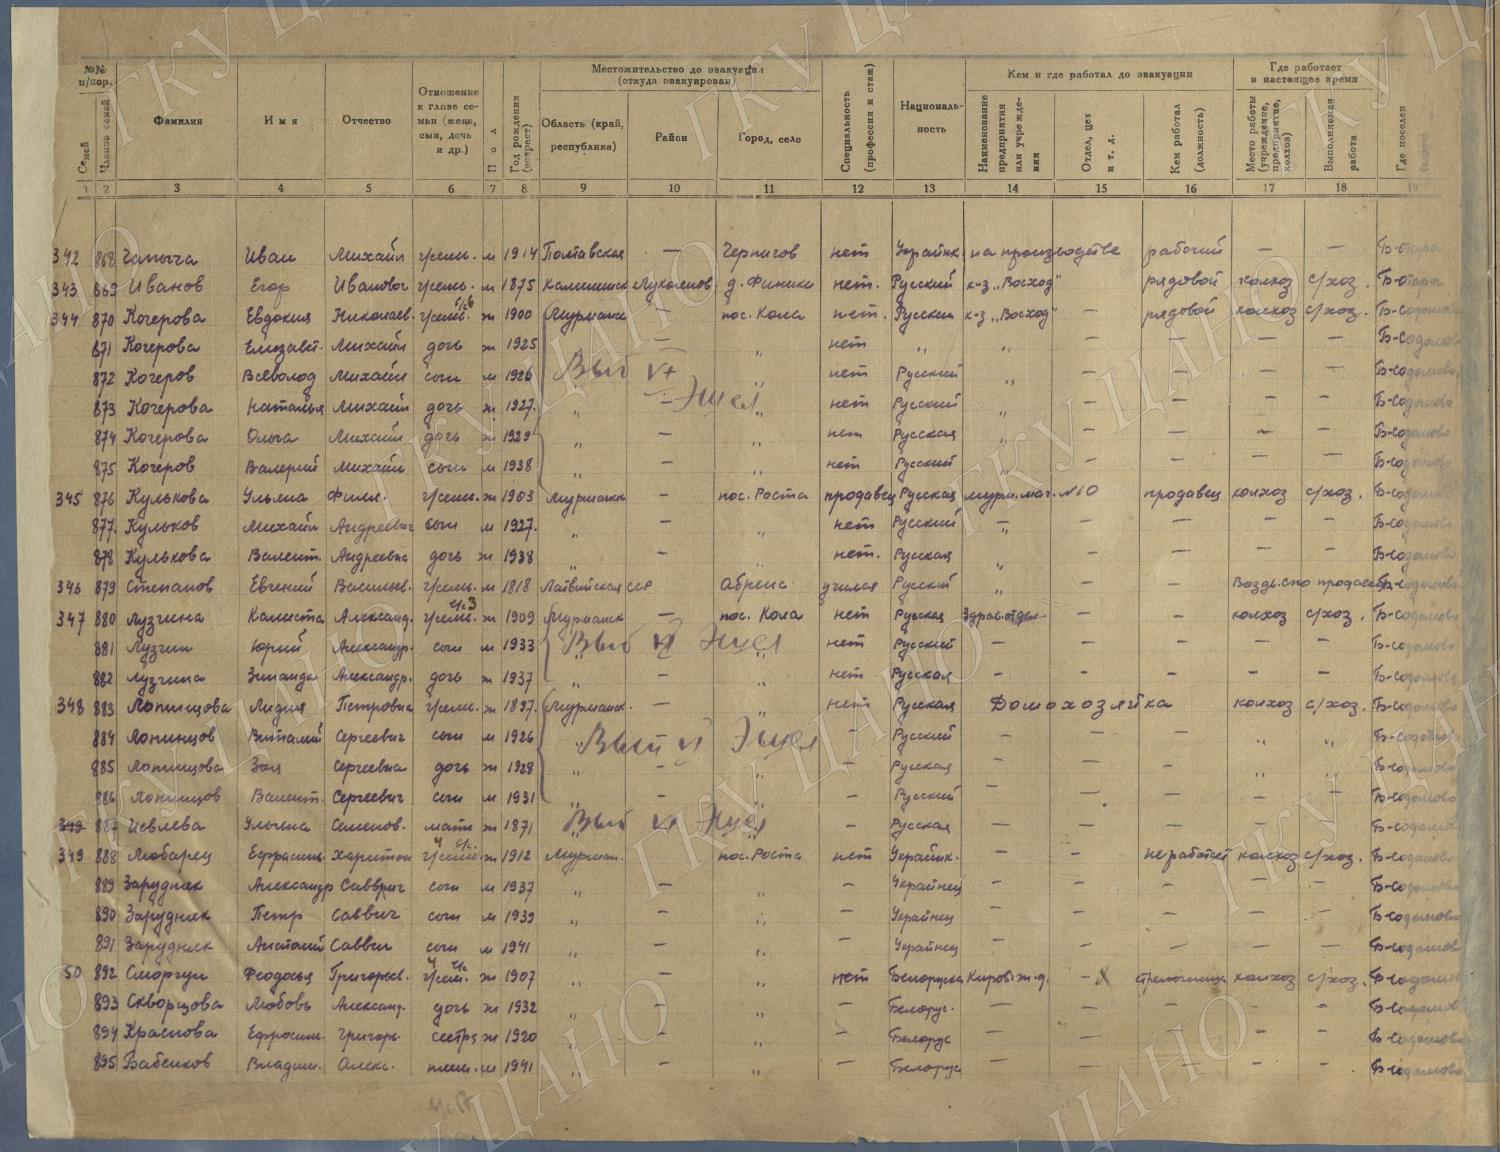 №№ п/пор.
Семей
Членов семей
Фамилия
Имя
Отчество
Отношение к главе семьи (жена, сын, дочь и др.)
Пол
Год рождения (возраст)
Местожительство до эвакуации (откуда эвакуирован)
Область (край, республика)
Район
Город, село
Специальность (профессия и стаж)
Националь-ность
Кем и где работал до эвакуации
Наименование предприятия или учреждения
Отдел, цех и т. д.
Кем работал (должность)
Где работает в настоящее время
Место работы (учреждение, предприятие, колхоз)
Выполняемая работа
Где поселен
1 2 3 4 5 6 7 8 9 10 11 12 13 14 15 16 17 18 19
342 868 Иван Михайл г/семь. м 1914 Полтавская — Чернигов нет Украинк. на производстве рабочий — —
343 869 Иванов Егор Иванович г/семь. м 1875 д. Финики нет. Русский к-з „Восход" рядовой колхоз с/хоз.
344 870 Кочерова Евдокия Николаев. г/семь. ж 1900 Мурманск — пос. Кола нет. Русская к-з „Восход" — рядовой колхоз с/хоз. Б-Содомово
871 Кочерова Елизавт. Михайл дочь ж 1925 — „ нет „ „ — — — — Б-Содомово
872 Кочеров Всеволод Михайл сын м 1926 Выб „ нет Русский „ — — — — Б-Содомово
873 Кочерова Наталья Михайл дочь ж 1927. „ — „ нет Русский „ — — — — Б-Содомово
874 Кочерова Ольга Михайл дочь ж 1929 „ — „ нет Русская „ — — — — Б-Содомово
875 Кочеров Валерий Михайл сын м 1938 „ — „ нет Русский „ — — — — Б-Содомово
345 876 Кулькова Ульяна Фил. г/семь. ж 1903 Мурманск — пос. Роста продавец Русская мурм. маг. №10 продавец колхоз с/хоз. Б-Содомово
877. Кульков Михайл Андреевич сын м 1927. „ — „ нет Русский „ — — — — Б-Содомово
878 Кулькова Валент. Андреевна дочь ж 1938 „ — „ нет. Русская „ — — — — Б-Содомово
346 879 Степанов Евгений Васильев. г/семь. м 1818 Латвийская сср Абрене училея Русский — — — Б-Содомово
347 880 Лузгина Калиста Александ. г/семь. ж 1909 Мурманск — пос. Кола нет Русская Здрав.отдел — колхоз с/хоз. Б-Содомово
881 Лузгин Юрий Александр. сын м 1933 Выб „ нет Русский — — — — — Б-Содомово
882 Лузгина Зинаида Александр. дочь ж 1937 „ — „ нет Русская — — — — — Б-Содомово
348 883 Лопинцова Лидия Петровна г/семь. ж 1897. Мурманск. — „ нет Русская Домохозяйка колхоз с/хоз. Б-Содомово
884 Лопинцов Виталий Сергеевич сын м 1926 „ — Русский — — — „ „ Б-Содомово
885 Лопинцова Зоя Сергеевна дочь ж 1928 „ — „ — Русская — — — „ „ Б-Содомово
886 Лопинцов Валент. Сергеевич сын м 1931 „ — „ — Русский — — — — — Б-Содомово
349 887 Иевлева Ульяна Семенов. мать ж 1871 Выб „ — Русская — — — — — Б-Содомово
349 888 Любарец Ефросин. Харитон г/семь. ж 1912 Мурман. — пос. Роста нет Украинк. — — не работает колхоз с/хоз. Б-Содомово
889 Зарудняк Александр Саввич сын м 1937 „ — „ — Украинец — — — — — Б-Содомово
890 Зарудняк Петр Саввич сын м 1939 „ — „ — Украинец — — — — — Б-Содомово
891 Зарудняк Анатолий Саввич сын м 1941 „ — „ — Украинец — — — — — Б-Содомово
50 892 Сморгун Феодосья Григорьев. г/сем. ж 1907 „ — „ нет Белоруска Киров. ж-д. — стрелочница колхоз с/хоз. Б-Содомово
893 Скворцова Любовь Александ. дочь ж 1932 „ — „ — Белорус. — — — — — Б-Содомово
894 Краснова Ефросин. Григорь. сестра ж 1920 „ — „ — Белорус — — — — — Б-Содомово
895 Бабенков Владим. Алекс. плем. м 1941 „ — „ — Белорус — — — — — Б-Содомово
ГКУ ЦАНО